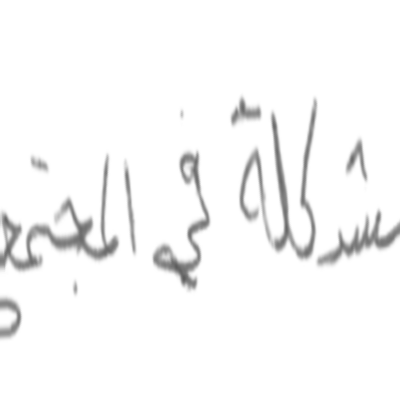 مشكلة في المجتمع